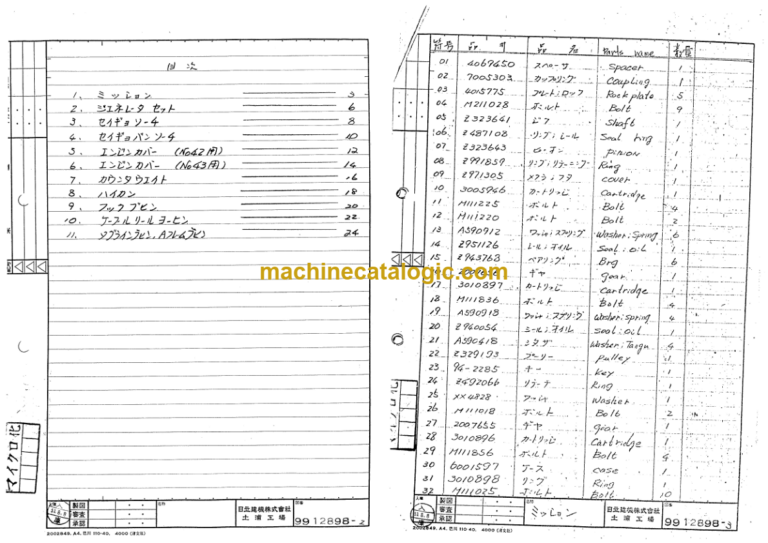 目次
1. ミッション 3
2. ジエネレータ セット 6
3. セイギョ ソーチ 8
4. セイギョバンソーチ 10
5. エンジンカバー (No42用) 12
6. エンジンカバー (No43用) 14
7. カウンタウエイト 16
8. ハイカン 18
9. フックブヒン 20
10. ケーブルリールヨーヒン 22
24
マイクロ化
製図
審査
承認
日北建機株式会社
土浦工場
9912898-2
符号 品名 Parts name 数量
01 4069450 スペーサ Spacer 1
02 7005303 カップリング Coupling 1
03 4015775 プレート;ロック Rockplate 5
04 M211028 ボルト Bolt 9
05 2323641 Shaft 1
06 2487108 リング;シール Seal ring 1
07 2323643 ピニオン pinion 1
08 2991859 Ring 1
09 2971305 cover 1
10 3005946 カートリッジ Cartridge 1
11 M111225 ボルト Bolt 4
12 M111220 ボルト Bolt 2
13 A590912 Washer;Spring 6
14 2951126 シール;オイル Seal;oil 1
15 2943763 ベアリング Brg 6
ギヤ gear 1
17 3010897 カートリッジ Cartridge 1
18 M111836 ボルト Bolt 4
19 A590918 Washer;spring 4
20 2940054 シール;オイル Seal;oil 1
21 A590418 4
22 2329193 プーリー pulley 1
23 94-2285 キー key 1
24 2492066 Ring 1
25 XX4828 Washer 1
26 M111018 ボルト Bolt 2
27 2007655 ギヤ gear 1
28 3010896 カートリッジ Cartridge 1
29 M111856 ボルト Bolt 4
30 6001597 ケース case 1
31 3010898 リング Ring 1
32 M111025 ボルト Bolt 10
製図
審査
承認
ミッション
日北建機株式会社
土浦工場
9912898-3
machinecatalogic.com